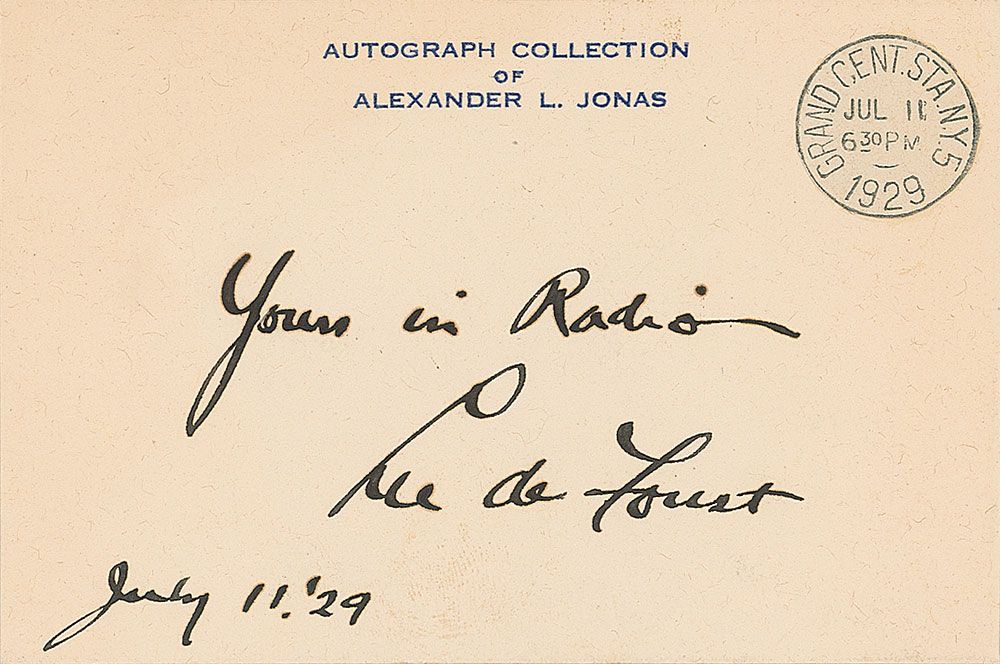 AUTOGRAPH COLLECTION
OF
ALEXANDER L. JONAS
GRAND CENT. STA. N.Y. 5
JUL 11
6 30 PM
1929
Yours in Radio
Lee de Forest
July 11. '29